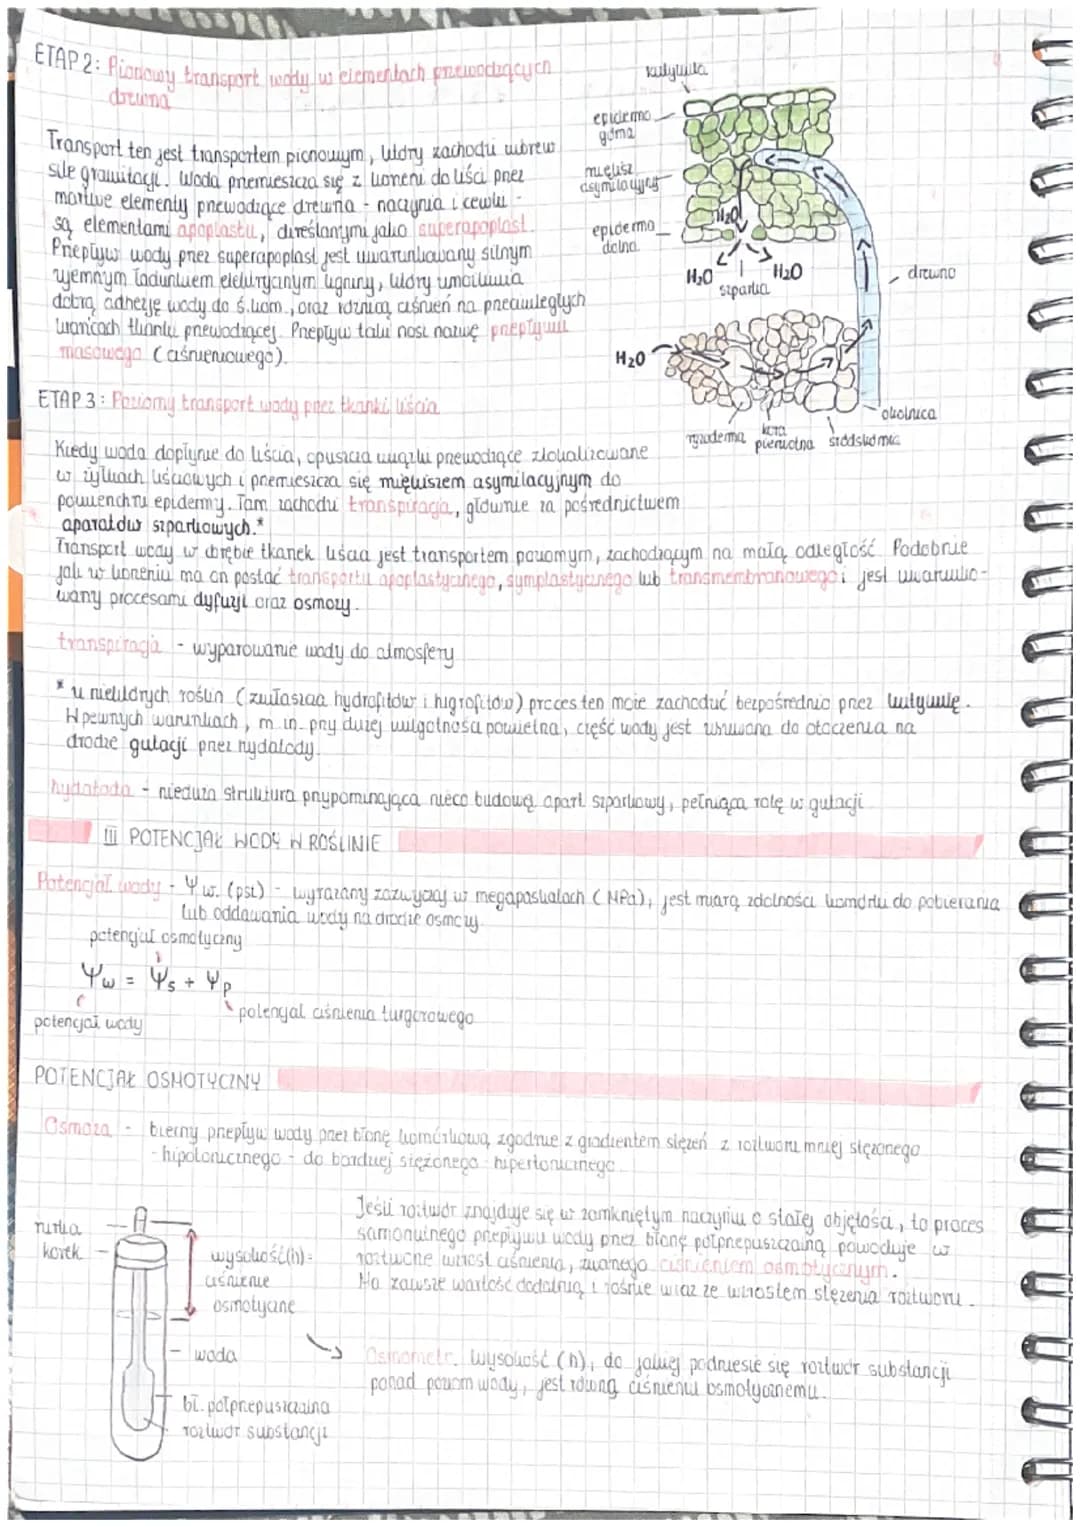 ETAP 2: Pionowy transport wody w elementach przewodzących
drewna
Transport ten jest transportem pionowym, który zachodzi wbrew
sile grawitacji. Woda przemieszcza się z korzeni do liści przez
martwe elementy przewodzące drewna - naczynia i cewki -
są elementami apoplastu, określanymi jako superapoplast.
Przepływ wody przez superapoplast jest uwarunkowany silnym
ujemnym ładunkiem elektrycznym ligniny, który umożliwia
dobrą adhezję wody do ś. kom., oraz różnicą ciśnień na przeciwległych
krańcach tkanki przewodzącej. Przepływ taki nosi nazwę przepływu
masowego (ciśnieniowego).
kutykula
epiderma
górna
miękisz
asymilacyjny
epiderma
dolna
H₂O
H₂O
H₂O
szparka
drewno
H₂O
okolnica
ryzoderma
kora
pierwotna
śródskórnia
ETAP 3: Poziomy transport wody przez tkanki liścia
Kiedy woda dopłynie do liścia, opuszcza wiązki przewodzące zlokalizowane
w żyłkach liściowych i przemieszcza się miękiszem asymilacyjnym do
powierzchni epidermy. Tam zachodzi transpiracja, głównie za pośrednictwem
aparatów szparkowych.*
Transport wody w obrębie tkanek liścia jest transportem poziomym, zachodzącym na małą odległość. Podobnie
jak w korzeniu ma on postać transportu apoplastycznego, symplastycznego lub transmembranowego i jest uwarunko-
wany procesami dyfuzji oraz osmozy.
transpiracja - wyparowanie wody do atmosfery
* u niektórych roślin (zwłaszcza hydrofitów i higrofitów) proces ten może zachodzić bezpośrednio przez kutykulę.
W pewnych warunkach, m. in. przy dużej wilgotności powietrza, część wody jest usuwana do otoczenia na
drodze gutacji przez hydatody.
hydatoda - nieduża struktura przypominająca nieco budową apart szparkowy, pełniąca rolę w gutacji
III POTENCJAŁ WODY W ROŚLINIE
Potencjał wody - Ψw. (psi) - wyrażany zazwyczaj w megapaskalach (MPa), jest miarą zdolności komórki do pobierania
lub oddawania wody na drodze osmozy.
potencjał osmotyczny
Ψw = Ψs + Ψp
potencjał ciśnienia turgorowego
potencjał wody
POTENCJAŁ OSMOTYCZNY
Osmoza - bierny przepływ wody przez błonę komórkową, zgodnie z gradientem stężeń z roztworu mniej stężonego
- hipotonicznego - do bardziej stężonego - hipertonicznego.
rurka
korek
wysokość (h) =
ciśnienie
osmotyczne
woda
bł. półprzepuszczalna
roztwór substancji
Jeśli roztwór znajduje się w zamkniętym naczyniu o stałej objętości, to proces
samorzutnego przepływu wody przez błonę półprzepuszczalną powoduje w
roztworze wzrost ciśnienia, zwanego ciśnieniem osmotycznym.
Ma zawsze wartość dodatnią i rośnie wraz ze wzrostem stężenia roztworu.
Osmometr. Wysokość (h), do jakiej podniesie się roztwór substancji
ponad poziom wody, jest równą ciśnieniu osmotycznemu.